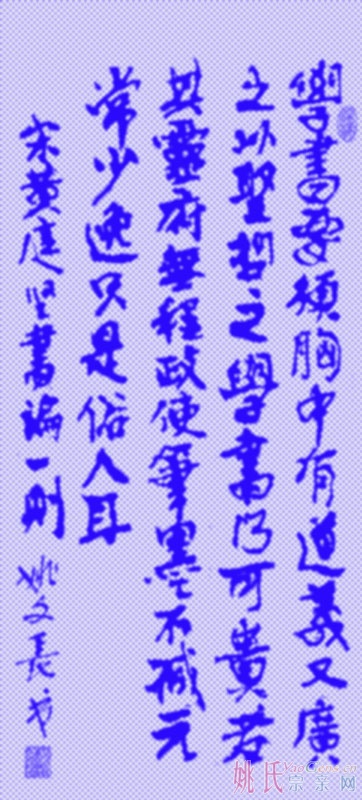 學書要須胸中有道義又廣
之以聖哲之學書乃可貴若
其靈府無程政使筆墨不減元
常少逸只是俗人耳
宋黄庭坚書論一則
姚文長
姚氏宗亲网